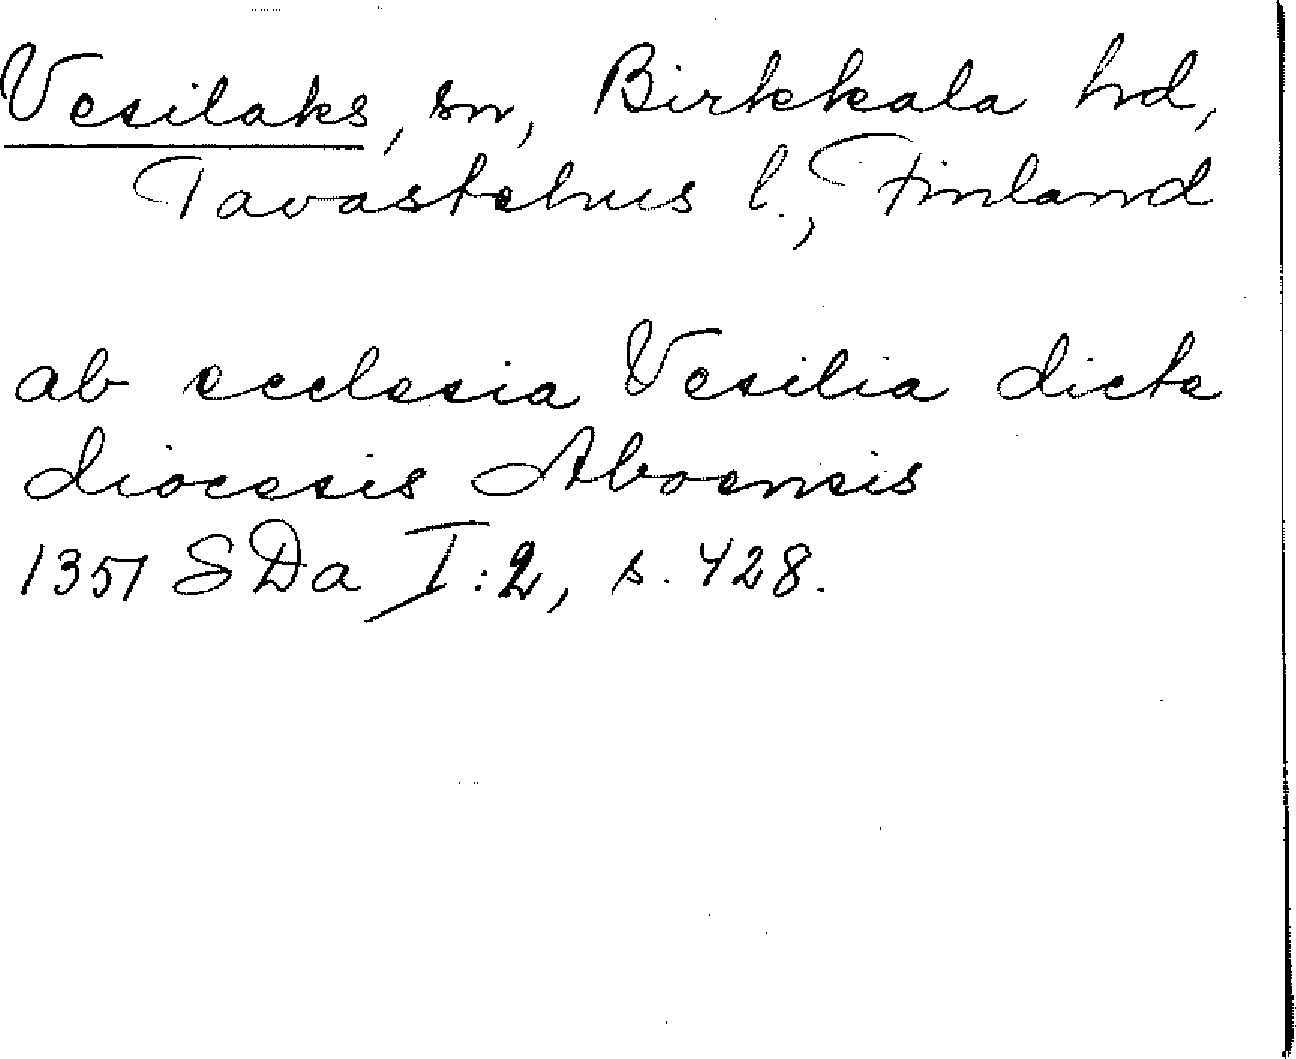 Vesilaks, sn, Birkkala hd,
Tavastehus l., Finland
ab ecclesia Vesilia dicte
diocesis Aboensis
1351 SDa I:2, s. 428.